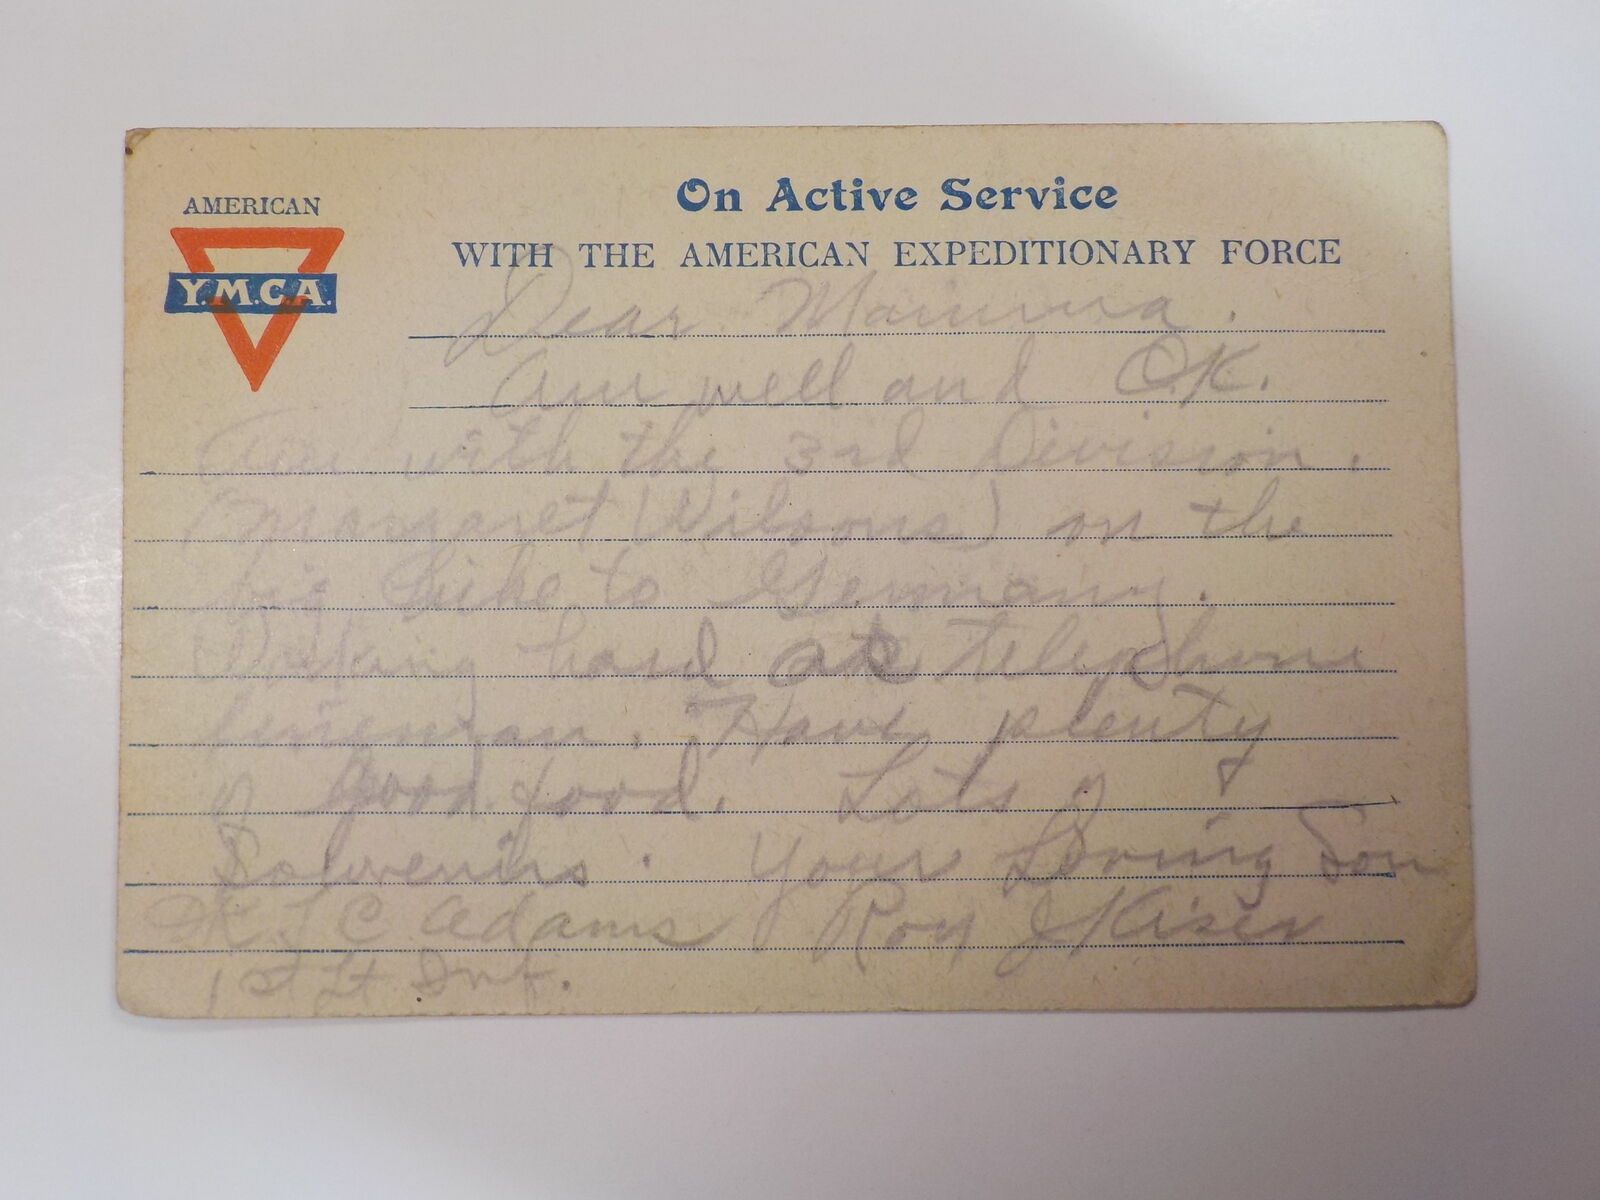 AMERICAN
Y.M.C.A.
On Active Service
WITH THE AMERICAN EXPEDITIONARY FORCE
Dear Mamma.
Am well and O.K.
Am with the 3rd Division.
(Margaret Wilsons) on the
big hike to Germany.
Working hard at telephone
lineman. Have plenty
of good food. Lots of
Solvenirs. Your Loving Son
Roy Kiser
C Adams
1st Lt Inf.